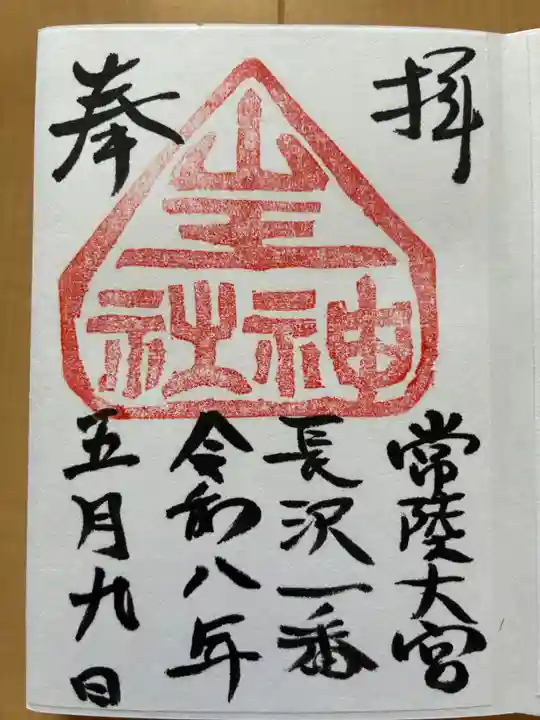 奉拝
山王
神社
常陸大宮
長沢一番
令和八年
五月九日